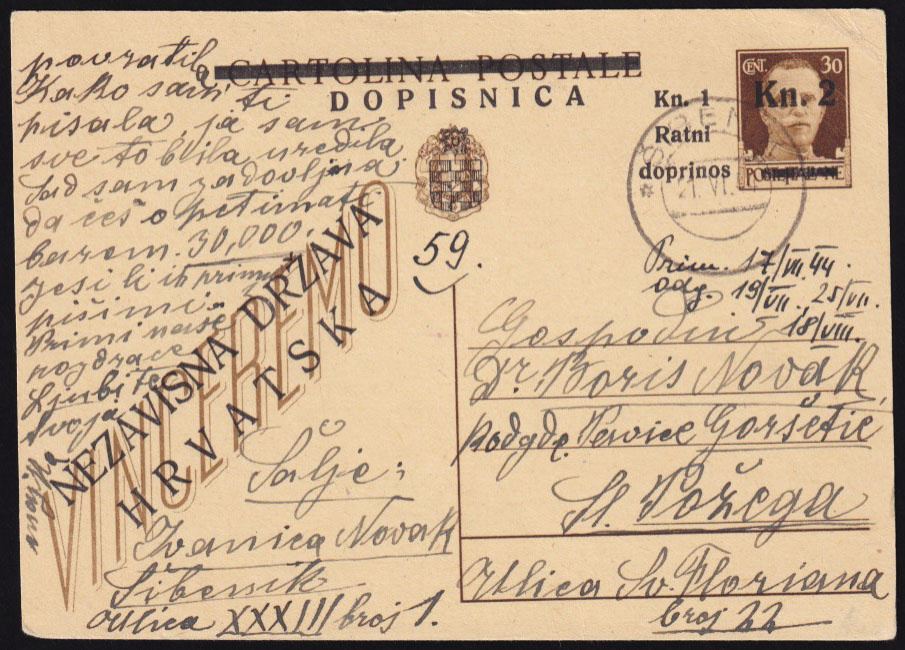 povratila
Kako sam ti
pisala, ja sam
sve to bila uredila
Sad sam zadovoljna
da ćeš opet imati
barem 30,000.
jesi li ih primio
piši mi.
Primi naše
pozdrave
Ljubi te
tvoja
CARTOLINA POSTALE
DOPISNICA
Kn. 1
Ratni
doprinos
CENT. 30
Kn. 2
POSTE ITALIANE
21. VI.
59.
VINCEREMO
NEZAVISNA DRŽAVA
HRVATSKA
Prim. 17/VII 44.
odg. 19/VII. 25/VII.
18/VIII.
Gospodin
Dr. Boris Novak
podgdę Pervice Goršetić
Sl. Požega
Ulica Sv. Floriana
broj 22
Šalje:
Ivanica Novak
Šibenik
Ulica XXXIII broj 1.